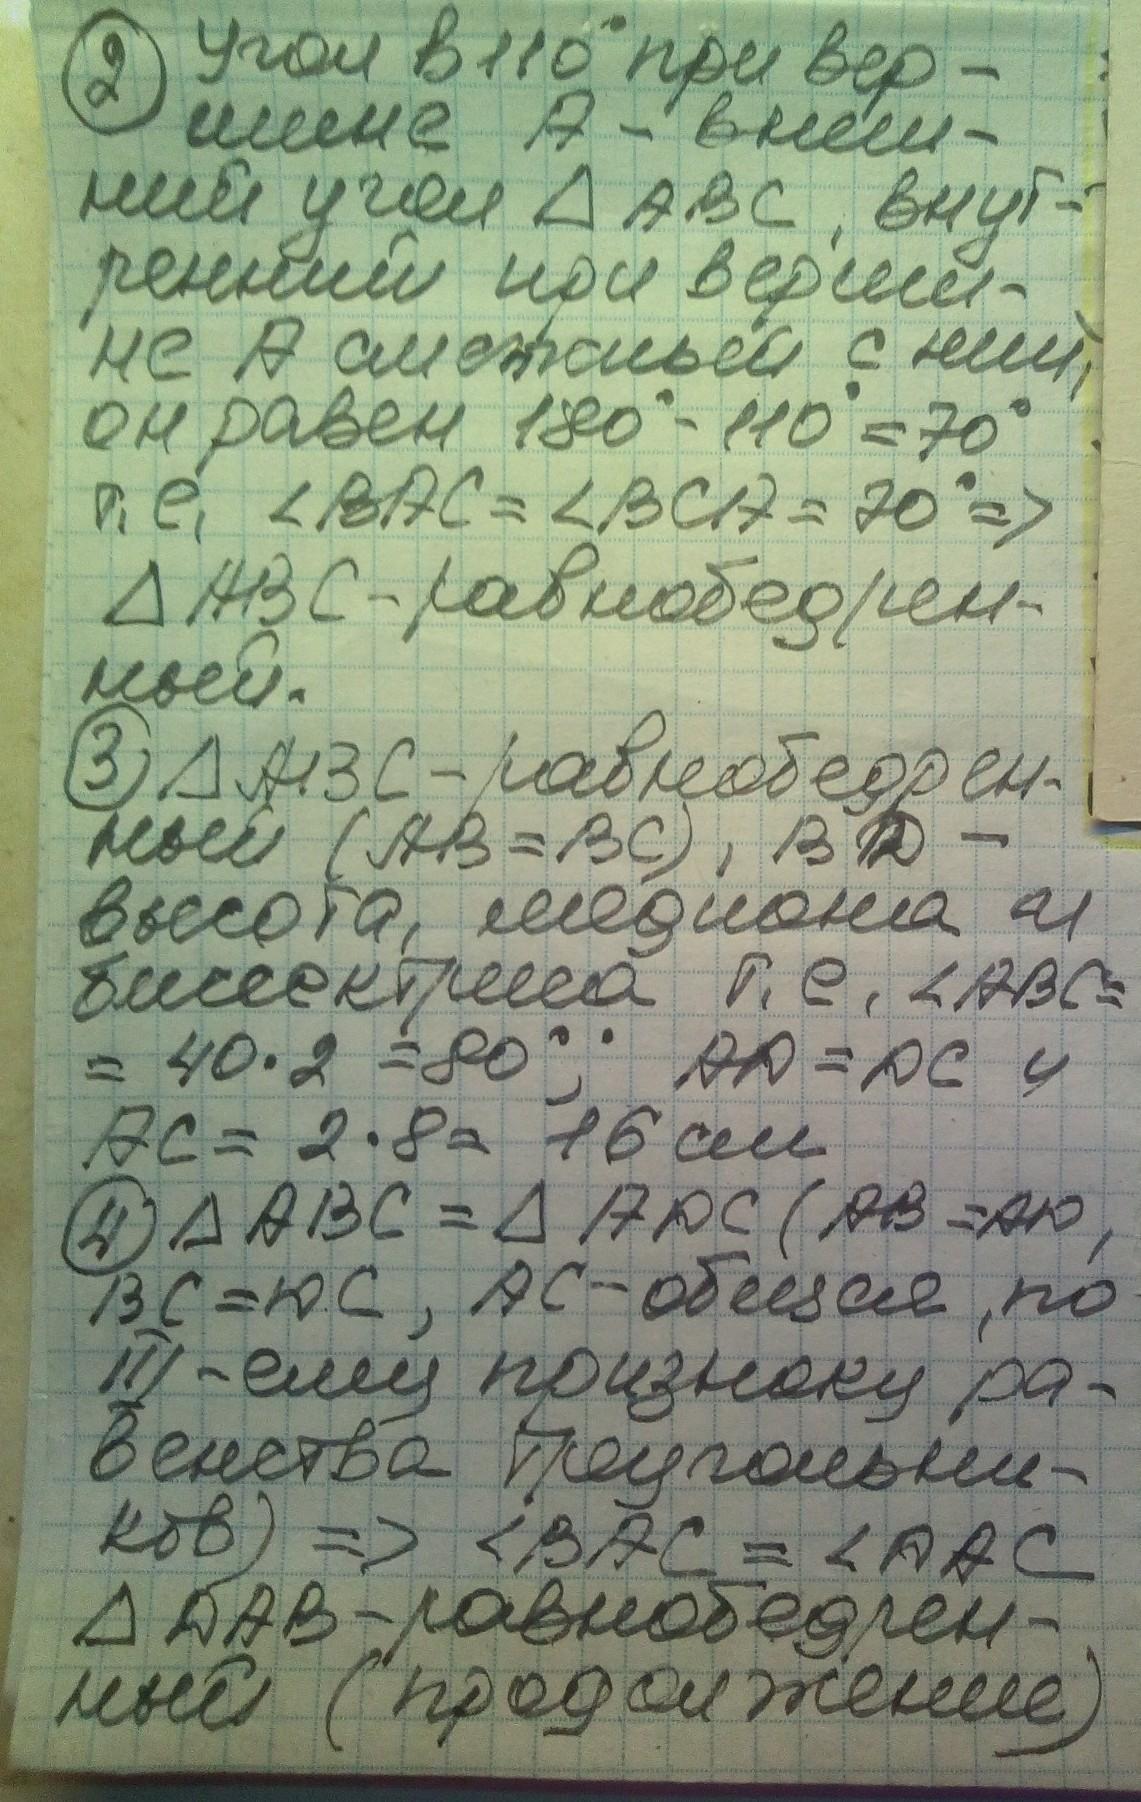 ② Угол в 110° при вер-
шине А - внеш-
ний угол △ ABC, внут-
ренний при верши-
не А смежный с ним,
он равен 180° - 110° = 70°
т.е. <BAC = <BCA = 70° =>
△ ABC - равнобедрен-
ный.
③ △ ABC - равнобедрен-
ный (AB = BC), BD -
высота, медиана и
биссектриса т.е. <ABC =
= 40·2 = 80°; AD = DC и
AC = 2·8 = 16 см
④ △ ABC = △ ADC (AB = AD,
BC = DC, AC - общая, по
III-ему признаку ра-
венства треугольни-
ков) => <BAC = <DAC
△ DAB - равнобедрен-
ный (продолжение)